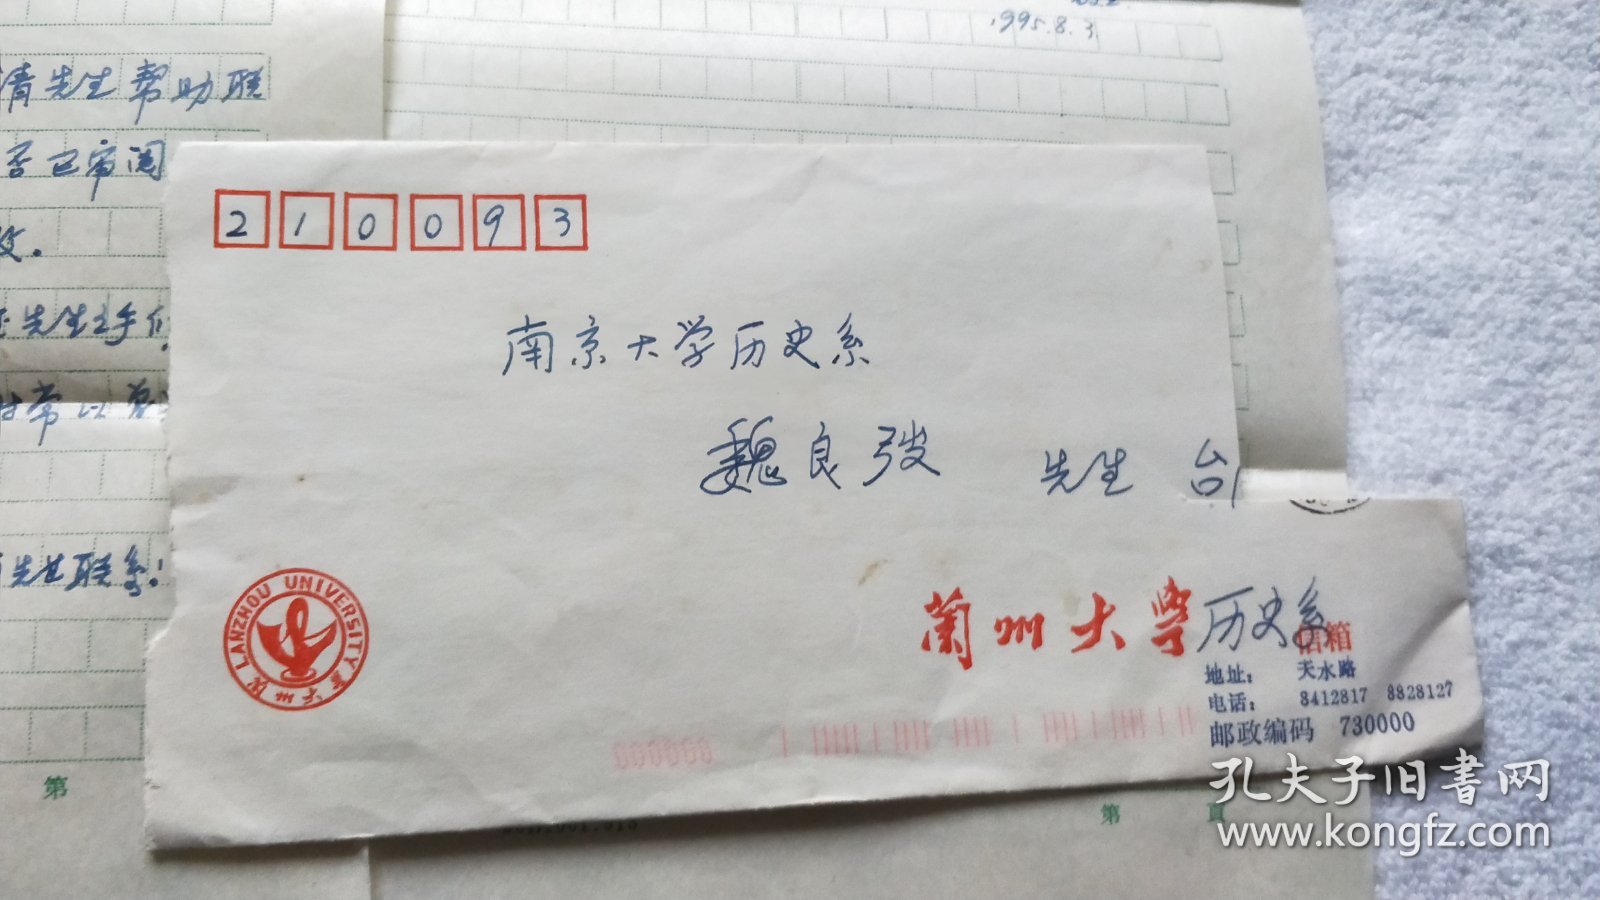 1995.8.3.
请先生帮助联
否已审阅
210093
先生之手
南京大学历史系
时常以
魏良弢 先生 台
先生联系!
LANZHOU UNIVERSITY 兰州大学
兰州大学历史系
信箱
地址: 天水路
电话: 8412817 8828127
邮政编码 730000
000000
第
第 頁
孔夫子旧书网
www.kongfz.com